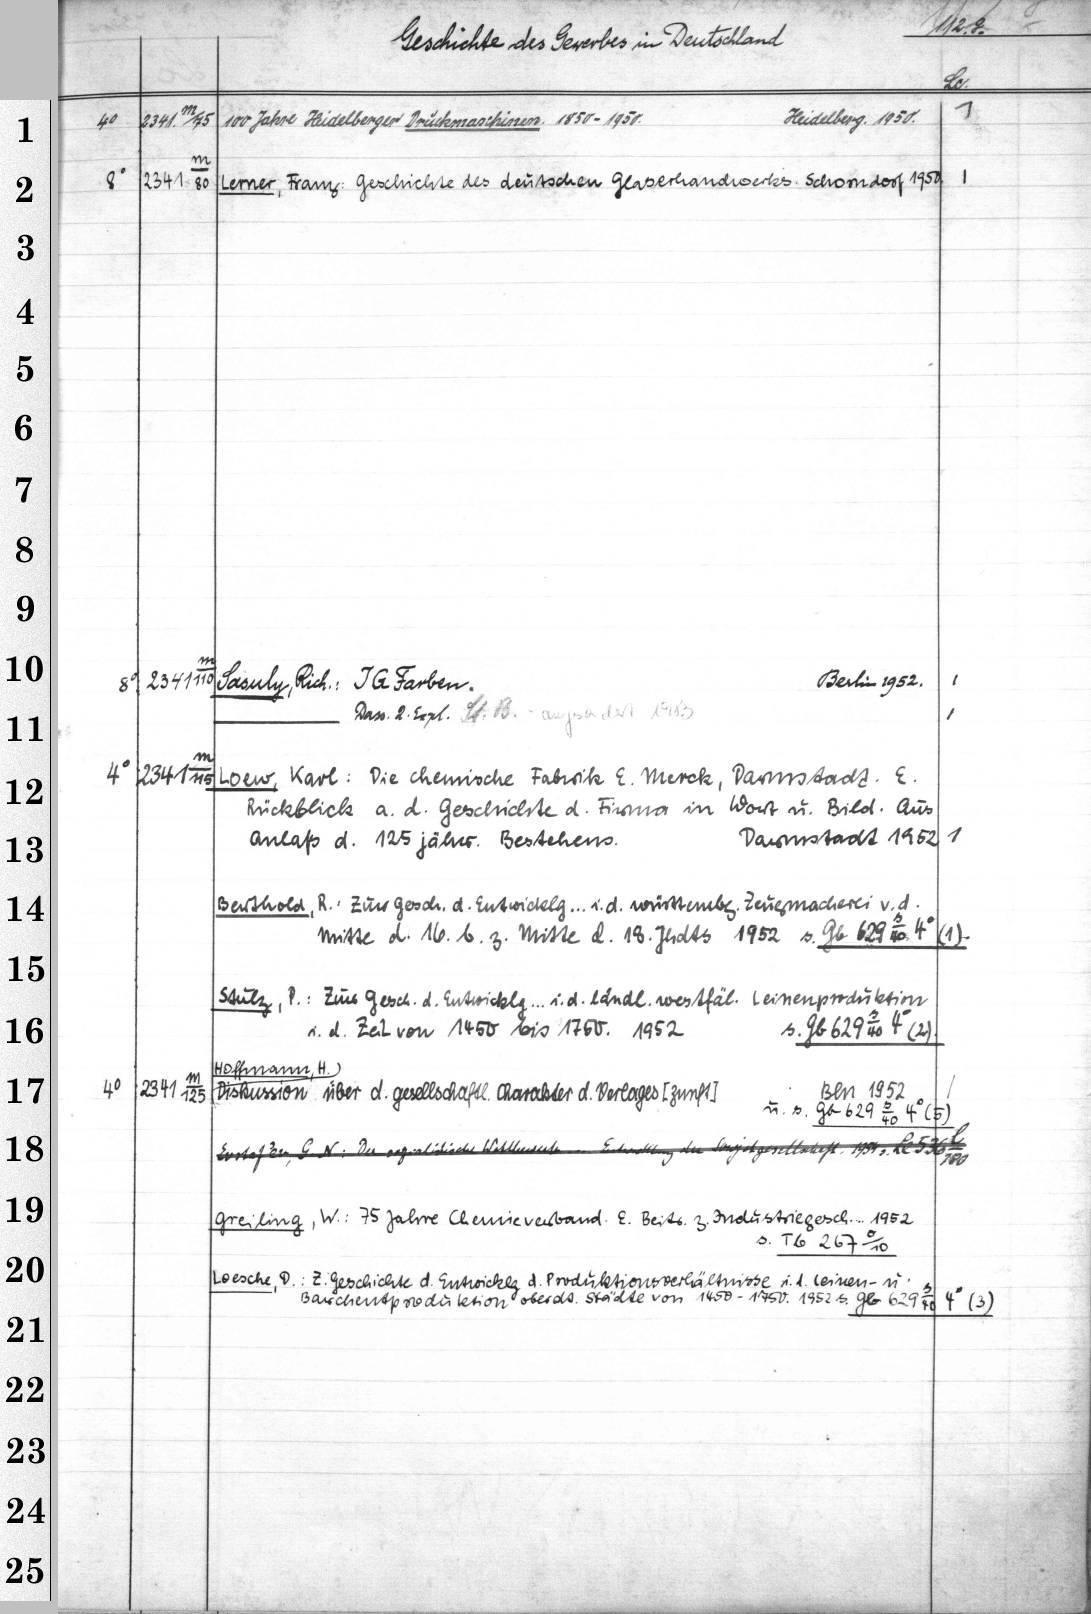 Geschichte des Gewerbes in Deutschland
Lc.
1 4° 2341 m/75 100 Jahre Heidelberger Druckmaschinen. 1850-1950. Heidelberg. 1950. 1
2 8° 2341 m/80 Lerner, Franz: Geschichte des deutschen Glaserhandwerks. Schorndorf 1950 1
3
4
5
6
7
8
9
10 8° 2341 m/110 Sasuly, Rich.: IG Farben. Berlin 1952. 1
11 Dass. 2. Expl. St. B. - ausgesondert 1983 1
12 4° 2341 m/115 Loew, Karl: Die chemische Fabrik E. Merck, Darmstadt. E.
Rückblick a. d. Geschichte d. Firma in Wort u. Bild. Aus
13 Anlaß d. 125 jähr. Bestehens. Darmstadt 1952 1
14 Berthold, R.: Zur Gesch. d. Entwicklg... i.d. württembg. Zeugmacherei v. d.
Mitte d. 16. b. z. Mitte d. 18. Jhdts 1952 s. Gb 629 s/40 4° (1).
15
Stulz, P.: Zur Gesch. d. Entwicklg... i.d. ländl. westfäl. Leinenproduktion
16 i. d. Zeit von 1450 bis 1750. 1952 s. Gb 629 s/40 4° (2).
Hoffmann, H.)
17 4° 2341 m/125 Diskussion über d. gesellschaftl. Charakter d. Verlages [Zunft] Bln 1952 /
u. s. Gb 629 s/40 4° (5)
18
19 Greiling, W.: 75 Jahre Chemieverband. E. Beitr. z. Industriegesch... 1952
s. Tb 267 o/10
20 Loesche, D.: Z. Geschichte d. Entwicklg d. Produktionsverhältnisse i. d. Leinen- u.
Barchentproduktion oberdt. Städte von 1450-1750. 1952 s. Gb 629 s/40 4° (3)
21
22
23
24
25